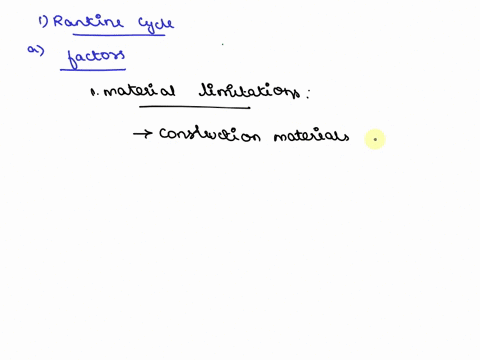 1) Rankine Cycle
a) factors
1. material limitations:
→ construction materials